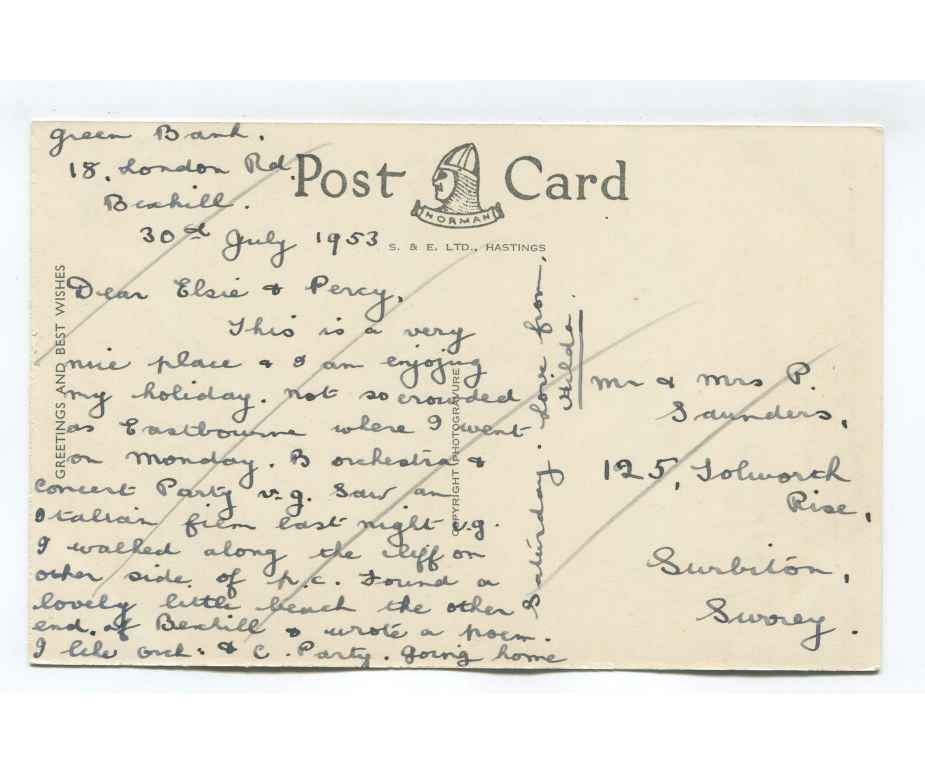 Green Bank.
18. London Rd.
Bexhill.
30th July 1953
Post Card
NORMAN
S. & E. LTD., HASTINGS
GREETINGS AND BEST WISHES
COPYRIGHT PHOTOGRAVURE
Dear Elsie & Percy,
This is a very
nice place & I am enjoying
my holiday. not so crowded
as Eastbourne where I went
on Monday. B orchestra &
Concert Party v.g. Saw an
Italian film last night v.g.
I walked along the cliff on
other side of p.c. Found a
lovely little beach the other
end. of Bexhill & wrote a poem.
I like orch: & C. Party. going home
Saturday. Love from.
Hilda
Mr & Mrs P.
Saunders,
125, Tolworth
Rise,
Surbiton,
Surrey.